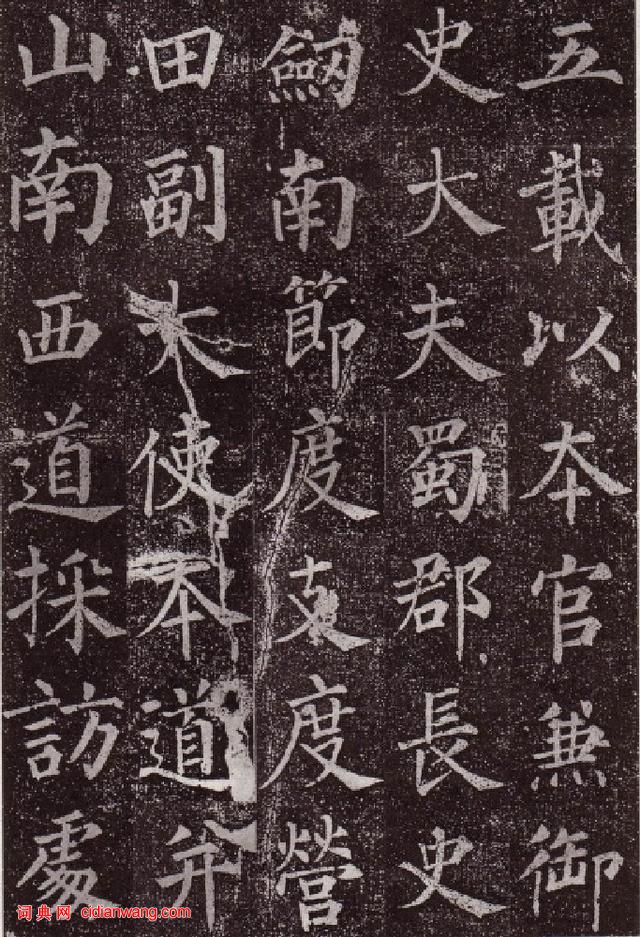 五載以夲官兼御
史大夫蜀郡長史
劒南節度支度營
田副大使夲道并
山南西道採訪處
词典网 cidianwang.com